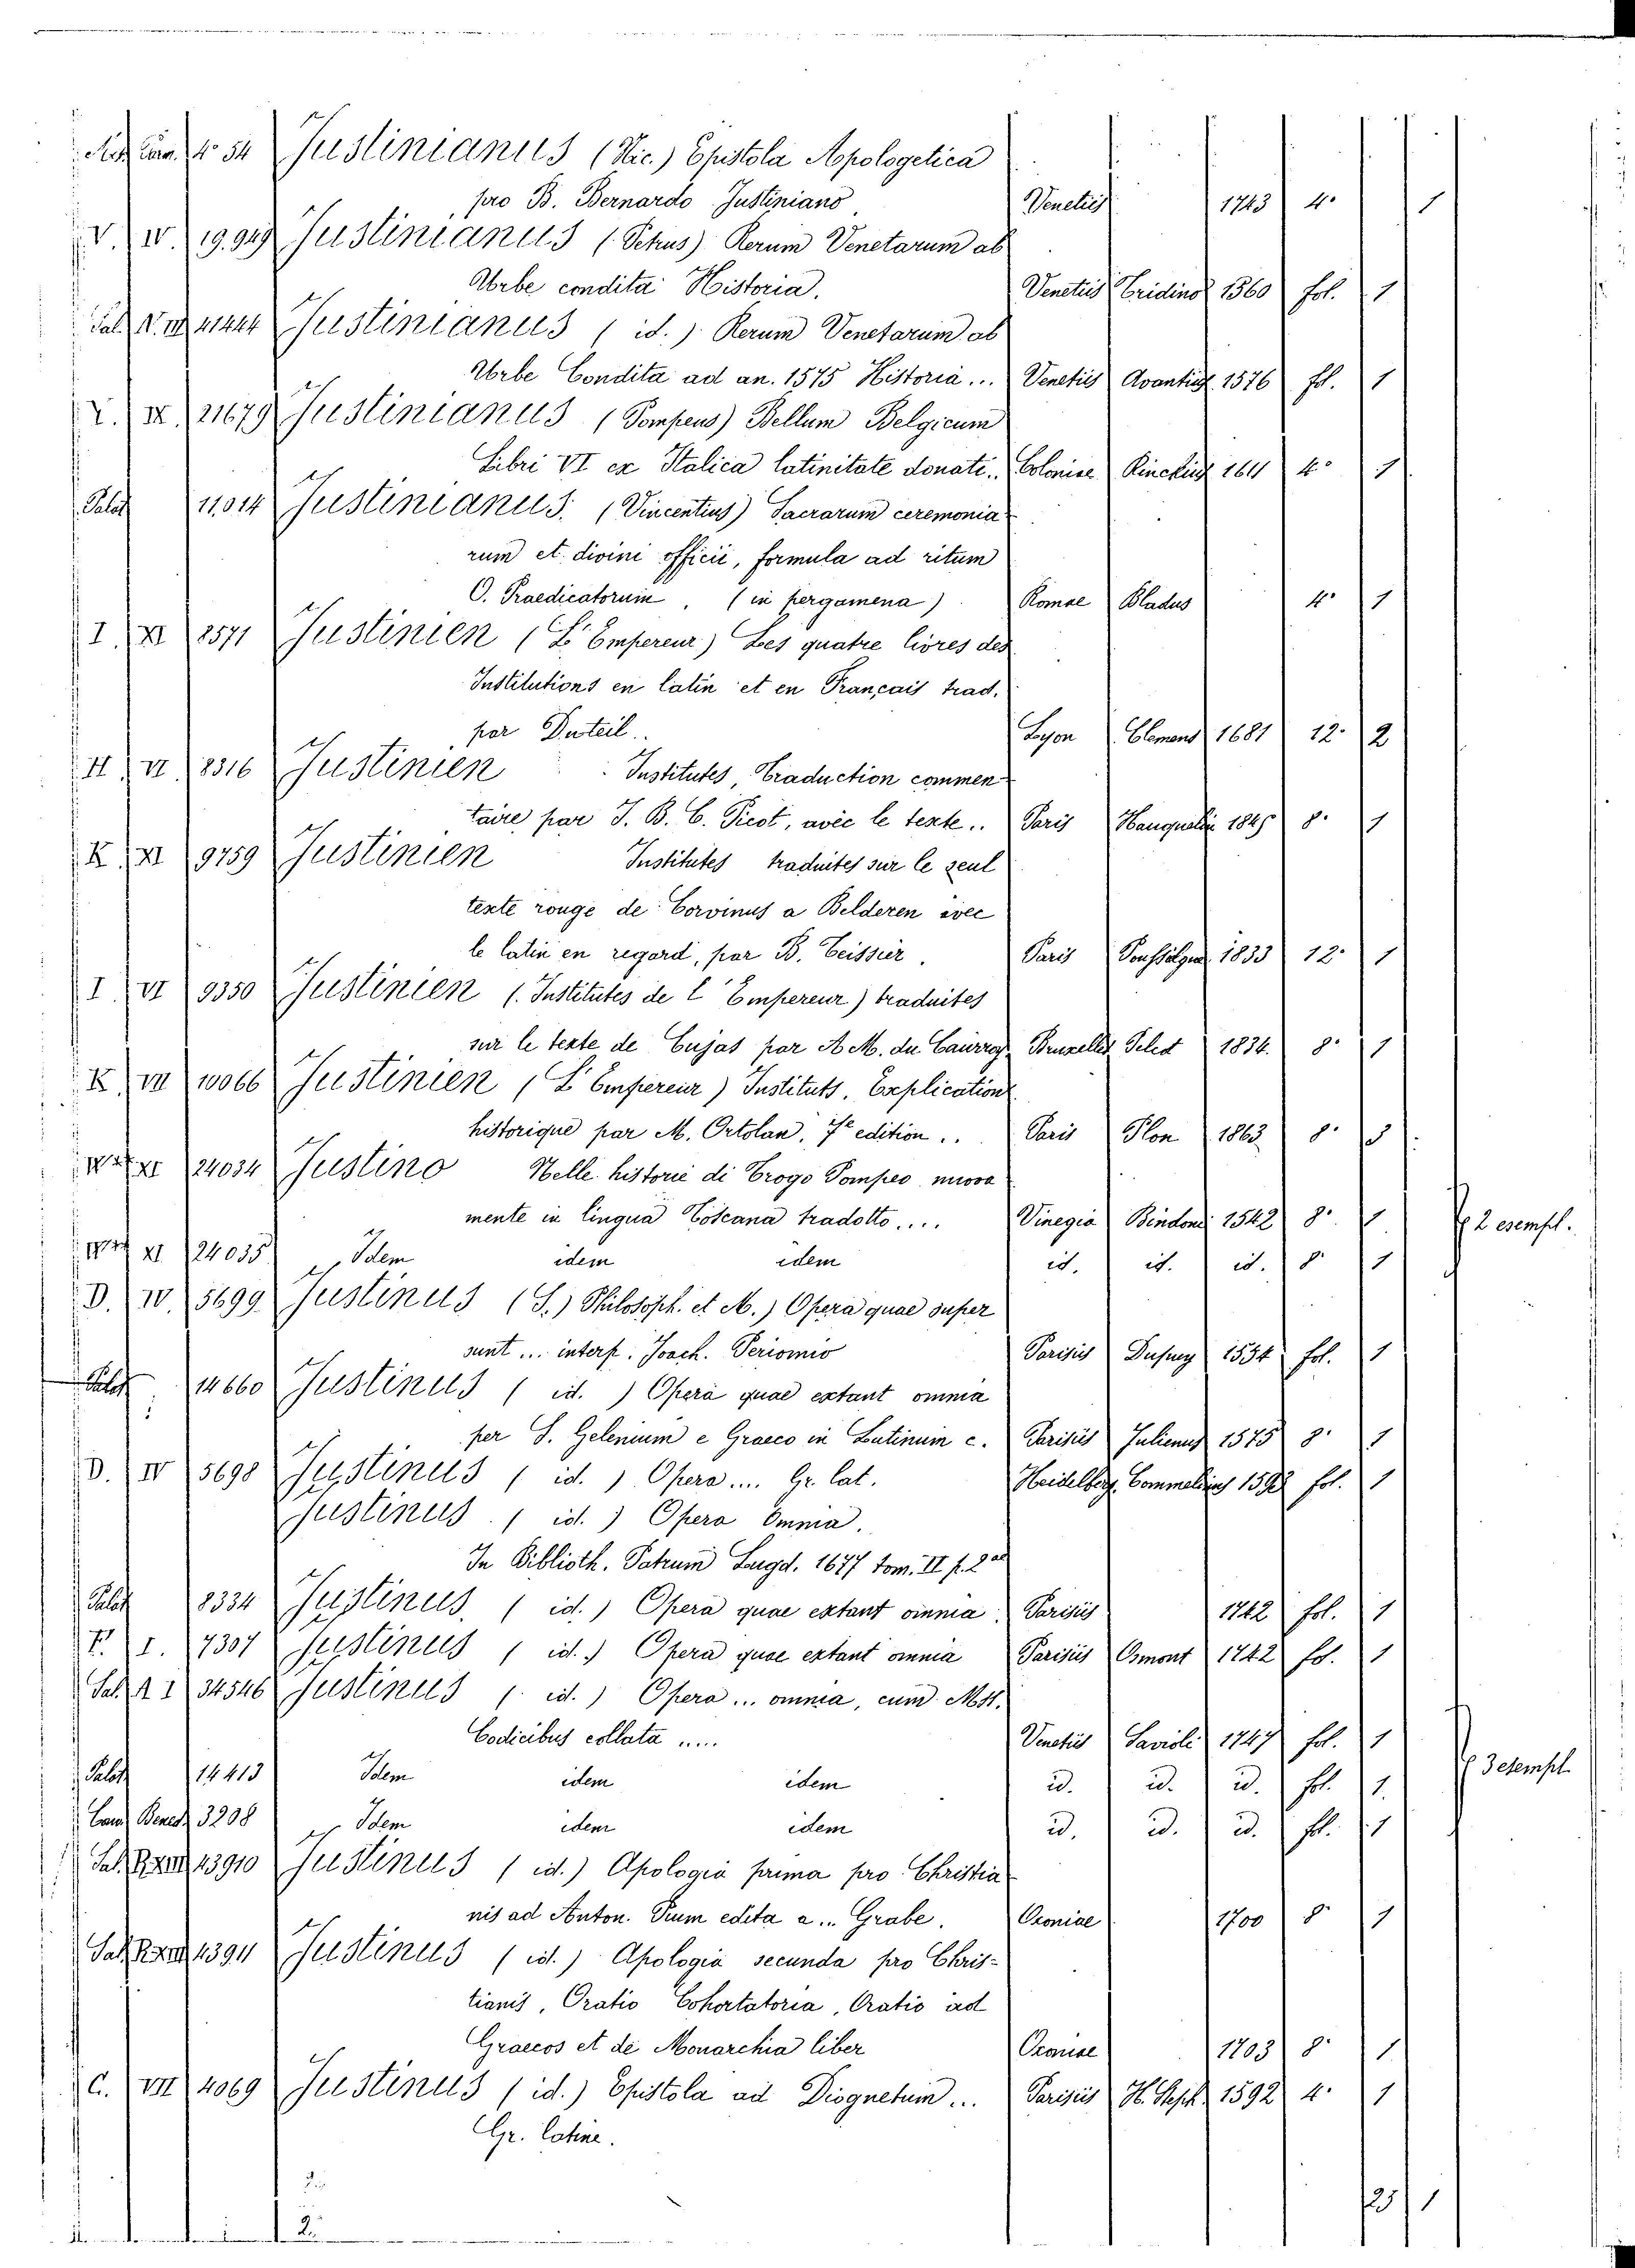 4° 54 Justinianus (Nic.) Epistola Apologetica
pro B. Bernardo Justiniano Venetiis 1743 4° 1
V. IV. 19.949 Justinianus (Petrus) Rerum Venetarum ab
Urbe condita Historia. Venetiis Tridinos 1560 fol. 1
41444 Justinianus (id.) Rerum Venetarum ab
Urbe Condita ad an. 1575 Historia... Venetiis Avantius 1576 fol. 1
IX 21679 Justinianus (Pompeus) Bellum Belgicum
Libri VI ex Italica latinitate donati.. Coloniae Rinckius 1611 4° 1
Palat 11,014 Justinianus. (Vincentius) Sacrarum ceremonia
rum et divini officii, formula ad ritum
O. Praedicatorum, (in pergamena) Romae Bladus 4° 1
I XI 8571 Justinien (L'Empereur) Les quatre livres des
Institutions en latin et en Français trad.
par Duteil.. Lyon Clemens 1681 12° 2
H VI 8316 Justinien Institutes, Traduction commen
taire par J. B. C. Picot, avèc le texte.. Paris 1845 8° 1
K XI 9759 Justinien Institutes traduites sur le seul
texte rouge de Corvinus a Belderen avec
le latin en regard, par B. Teissier. Paris 1833 12° 1
I VI 9350 Justinien (Institutes de l'Empereur) traduites
sur le texte de Cujas par A. M. du Caurroy Bruxelles 1834. 8° 1
K VII 10066 Justinien (L'Empereur) Instituts, Explication
historique par M. Ortolan, 7e edition.. Paris Plon 1863 8° 3
XI 24034 Justino Nelle historie di Trogo Pompeo nuova
mente in lingua Toscana tradotto.... Vinegia Bindoni 1542 8° 1 2 esempl.
XI 24035 Idem idem idem id. id. id. 8° 1
D. IV 5699 Justinus (S.) Philosoph. et M.) Opera quae super
sunt... interp. Joach. Perionio Parisiis Dupuy 1554 fol. 1
Palat 14660 Justinus (id.) Opera quae extant omnia
per S. Gelenium e Graeco in Latinum c. Parisiis Julienus 1575 8° 1
D. IV 5698 Justinus (id.) Opera.... Gr. lat. Heidelberg Commelinus 1592 fol. 1
Justinus. (id.) Opera Omnia.
In Biblioth. Patrum Lugd. 1677 tom. II p. 2ae
Palat 8334 Justinus. (id.) Opera quae extant omnia. Parisiis 1742 fol. 1
F. I. 7307 Justinus (id.) Opera quae extant omnia Parisiis Osmont 1742 fol. 1
Sal. A I 34546 Justinus (id.) Opera... omnia, cum Mst.
Codicibus collata..... Venetiis Savioli 1747 fol. 1
Palat 14413 Idem idem idem id. id. id. fol. 1. 3 esempl.
Bened. 3298 Idem idem idem id. id. id. fol. 1
43910 Justinus (id.) Apologia prima pro Christia
nis ad Anton. Pium edita a... Grabe. Oxoniae 1700 8° 1
Justinus (id.) Apologia secunda pro Chris-
tianis, Oratio Cohortatoria, Oratio ad
Graecos et de Monarchia liber Oxoniae 1703 8° 1
C. VII 4069 Justinus (id.) Epistola ad Diognetum... Parisiis H. Steph. 1592 4° 1
Gr. Latine.
2
2